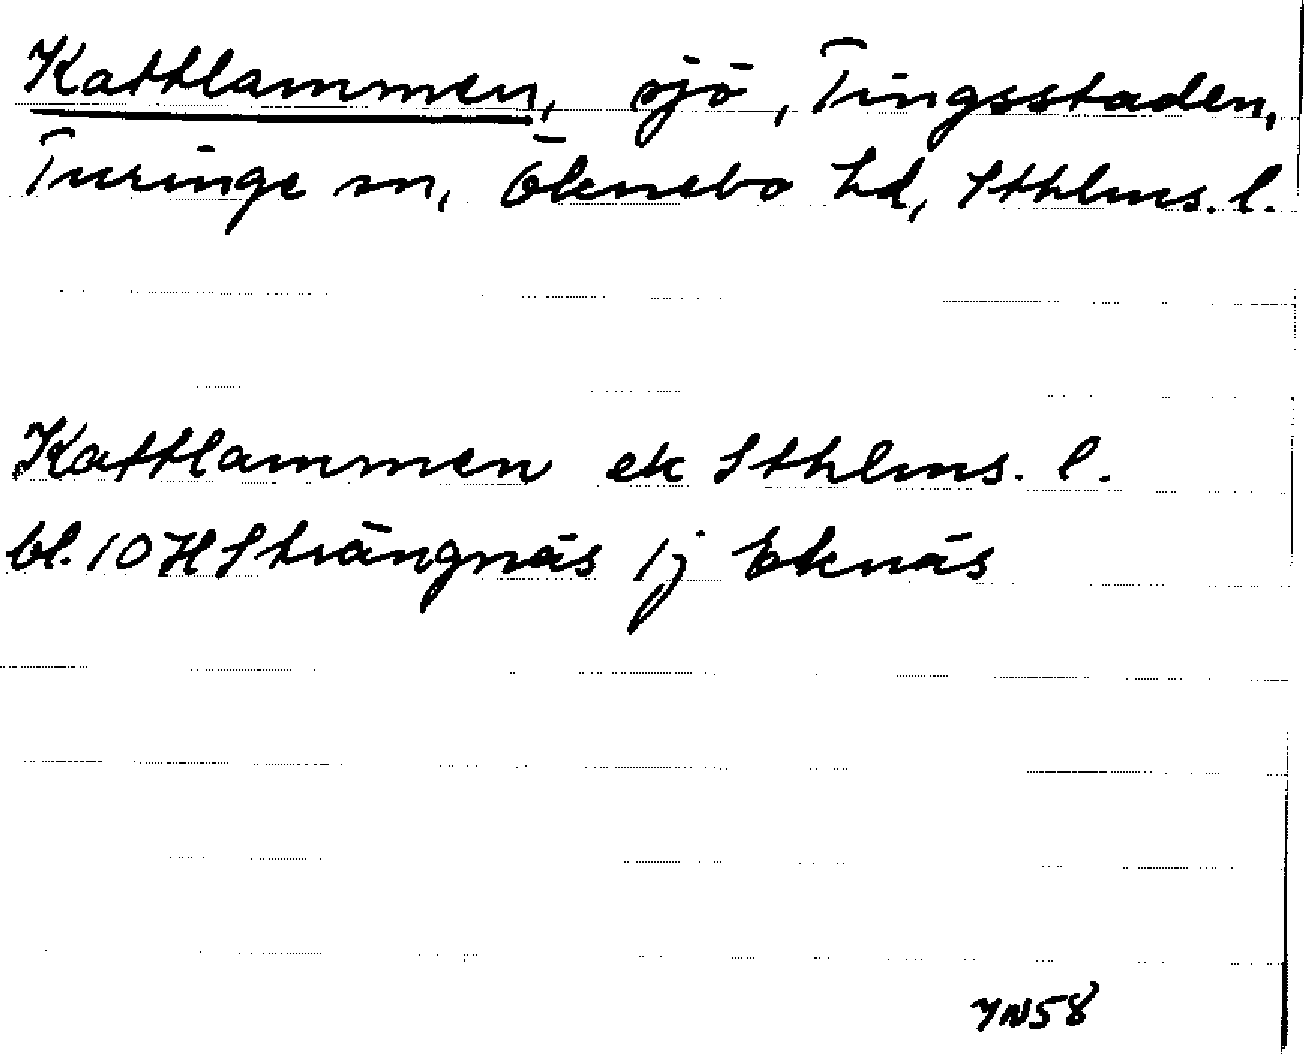 Kattlammen, sjö, Tingsstaden,
Turinge sn, Öknebo hd, Sthlms. l.
Kattlammen ek Sthlms. l.
bl. 10 H Strängnäs 1j Eknäs
YN58